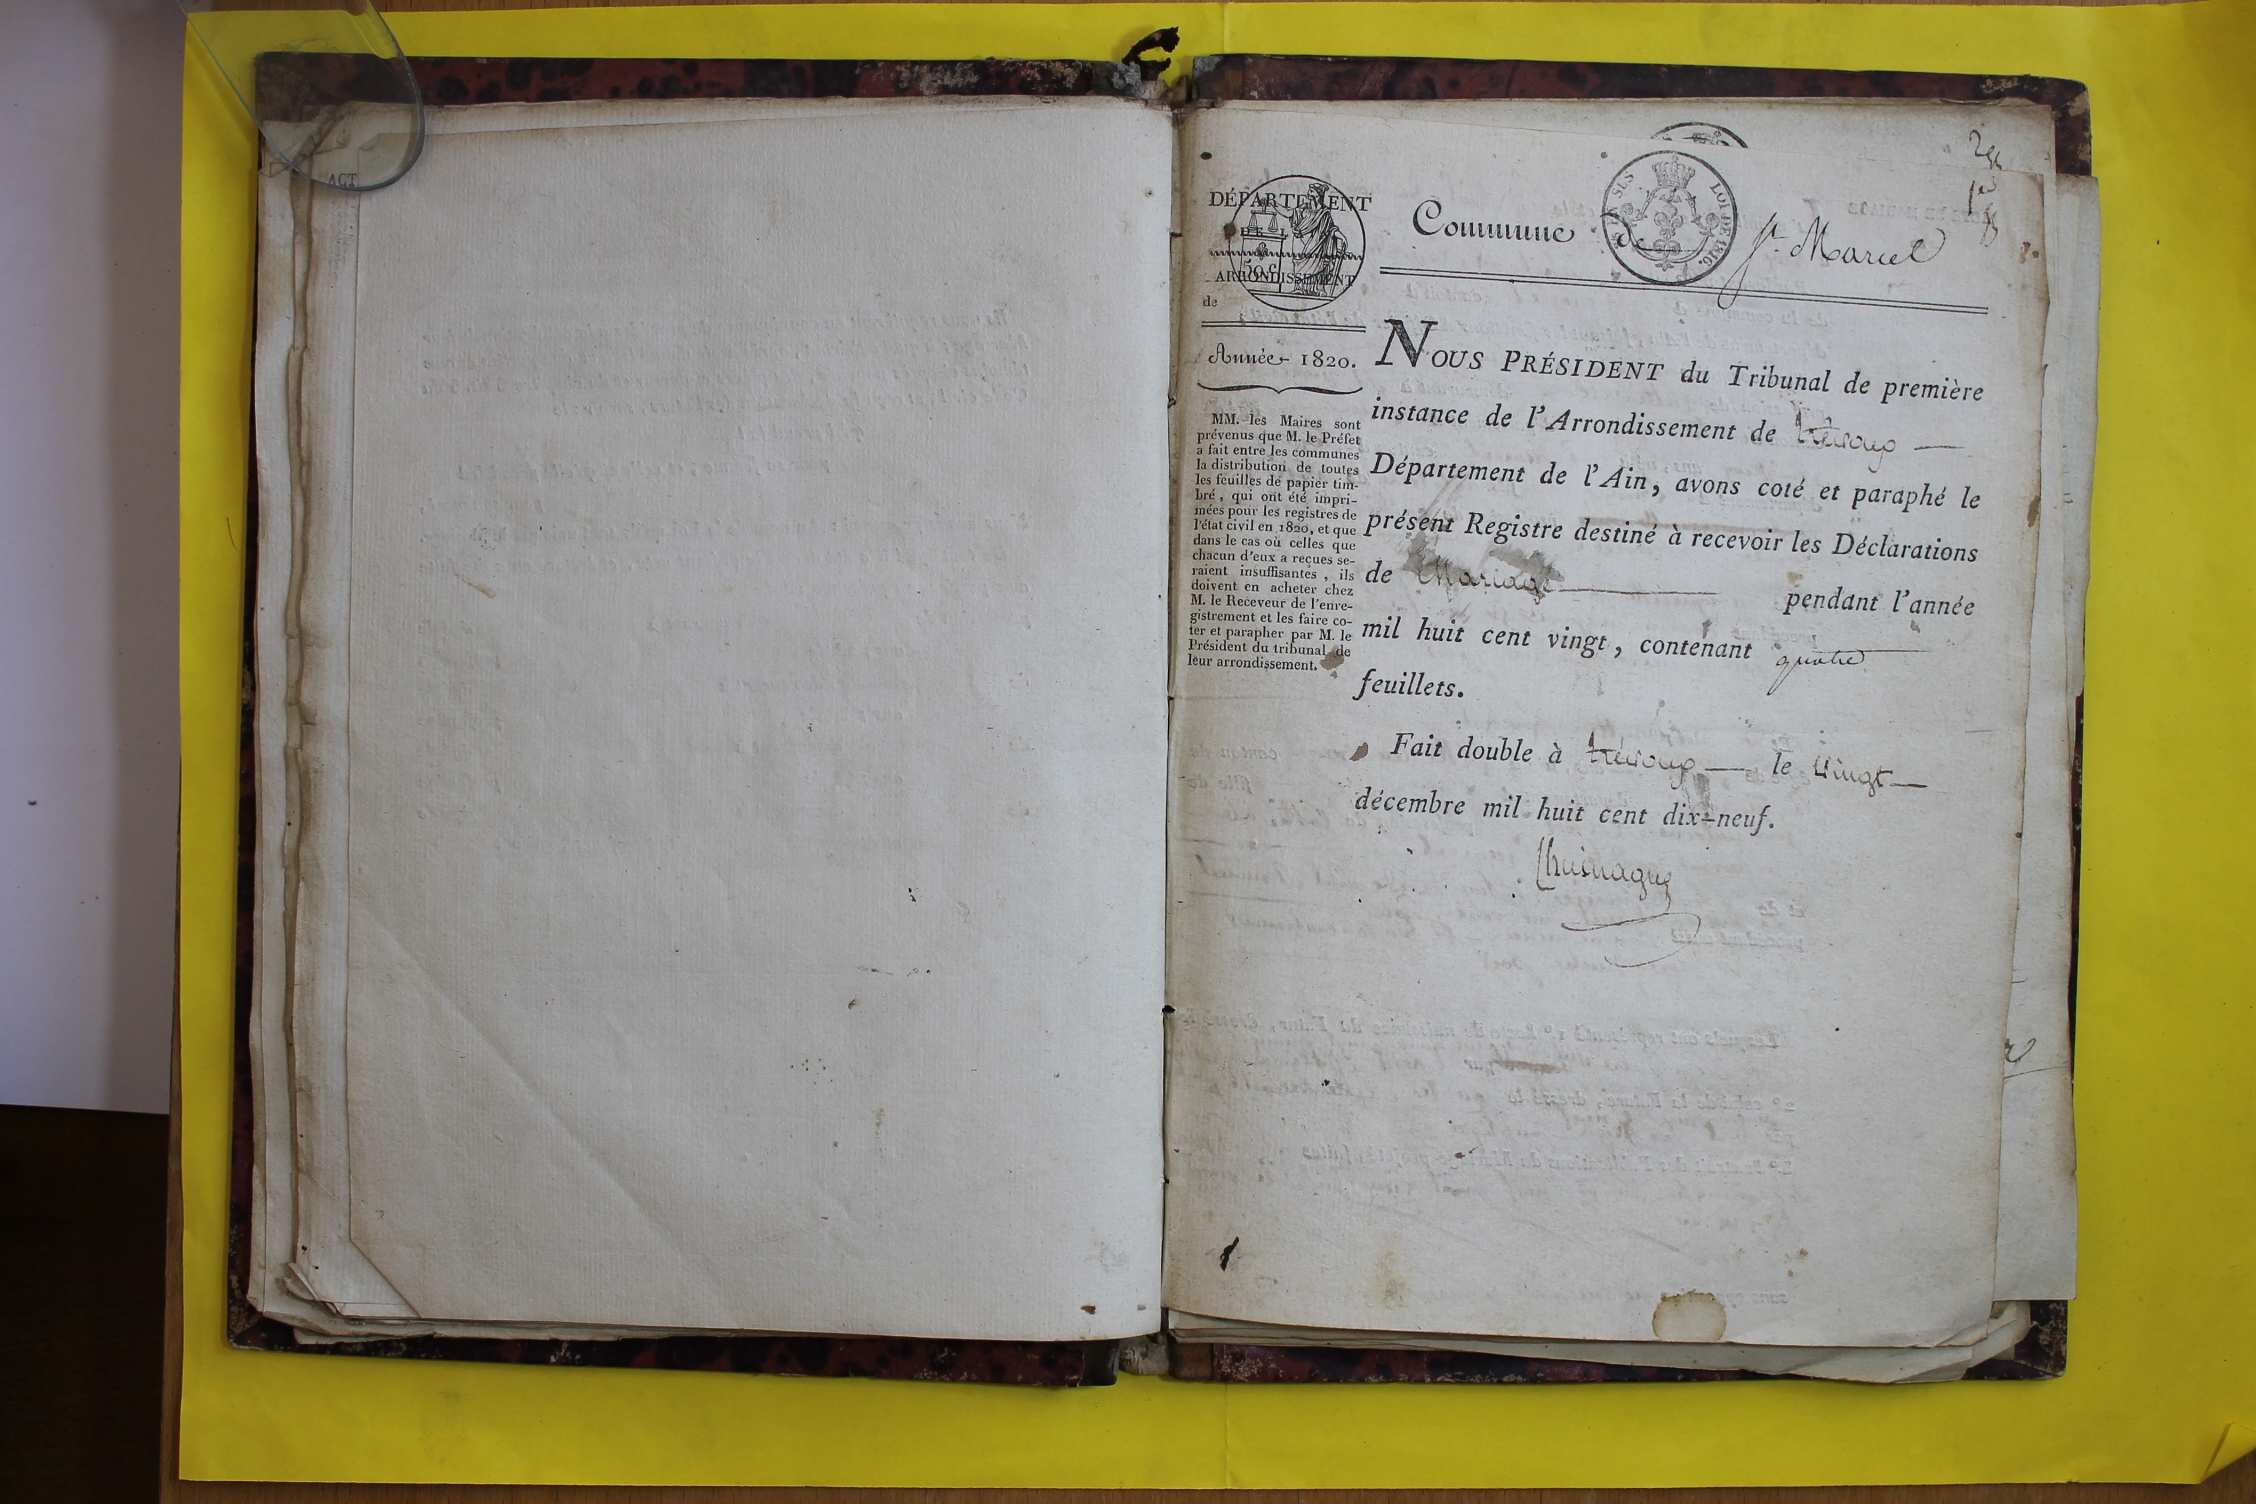 ACT
DÉPARTEMENT
DE L'AIN
50 c
ARRONDISSEMENT
de
Année 1820.
MM. les Maires sont
prévenus que M. le Préfet
a fait entre les communes
la distribution de toutes
les feuilles de papier tim-
bré, qui ont été impri-
mées pour les registres de
l'état civil en 1820, et que
dans le cas où celles que
chacun d'eux a reçues se-
raient insuffisantes, ils
doivent en acheter chez
M. le Receveur de l'enre-
gistrement et les faire co-
ter et parapher par M. le
Président du tribunal de
leur arrondissement.
Commune de St Marcel
EN SUS LOI DE 1816.
1er
NOUS PRÉSIDENT du Tribunal de première
instance de l'Arrondissement de trévoux
Département de l'Ain, avons coté et paraphé le
présent Registre destiné à recevoir les Déclarations
de Mariage pendant l'année
mil huit cent vingt, contenant quatre
feuillets.
Fait double à trévoux le vingt
décembre mil huit cent dix-neuf.